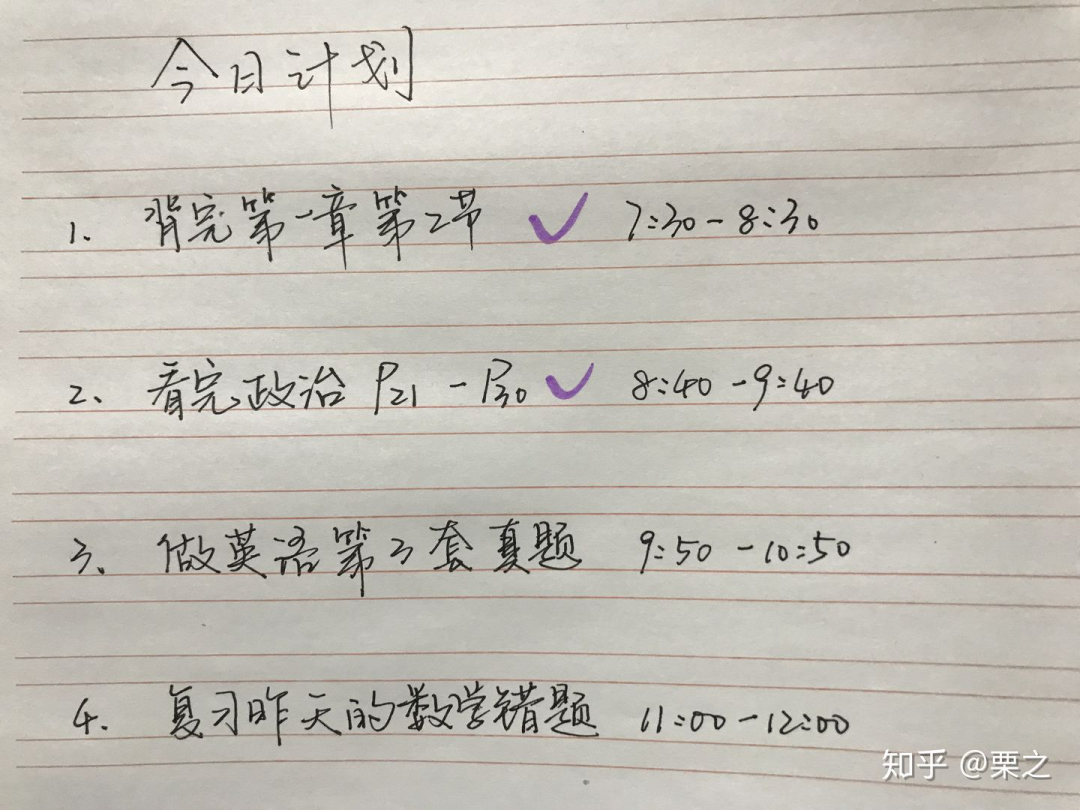 今日计划
1. 背完第一章第2节 ✓ 7:30-8:30
2. 看完政治 P21-P30 ✓ 8:40-9:40
3. 做英语第3套真题 9:50-10:50
4. 复习昨天的数学错题 11:00-12:00
知乎 @栗之